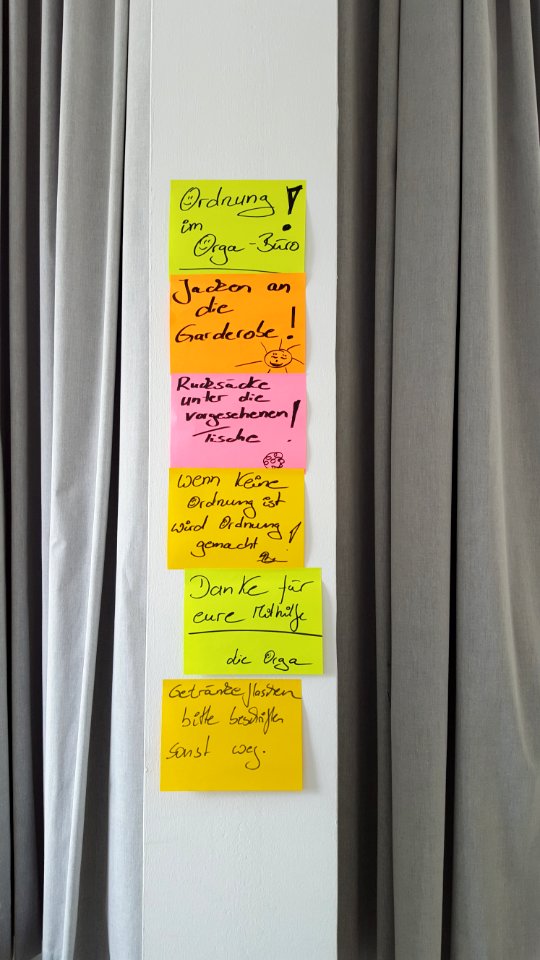 Ordnung!
im
Orga-Büro
Jacken an
die
Garderobe!
Rucksäcke
unter die
vorgesehenen!
Tische
wenn keine
Ordnung ist
wird Ordnung
gemacht!
Danke für
eure Mithilfe
die Orga
Getränkeflaschen
bitte beschriften
sonst weg.